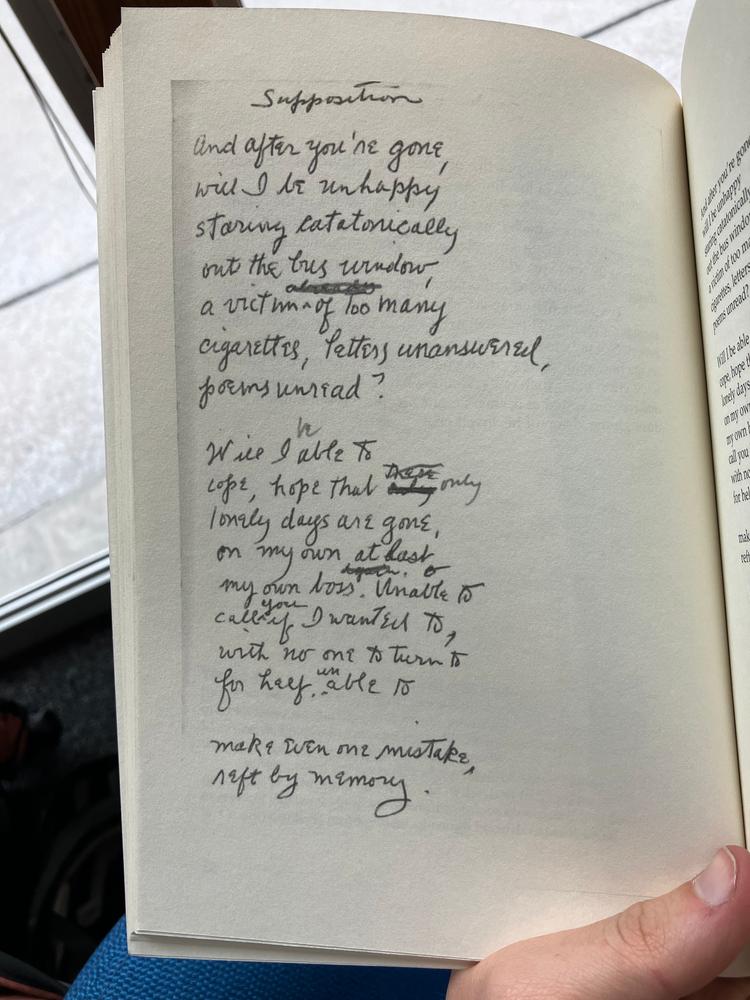 Supposition
And after you're gone,
will I be unhappy
staring catatonically
out the bus window,
already
a victim of too many
cigarettes, letters unanswered,
poems unread?
be
Will I able to
there
cope, hope that only only
lonely days are gone,
on my own at last
again.
my own boss. Unable to
you
call if I wanted to,
with no one to turn to
un
for help, able to
make even one mistake,
reft by memory.
And after you're gone
will I be unhappy
staring catatonically
out the bus windo
a victim of too m
cigarettes, letters
poems unread?
Will I be able
cope, hope th
lonely days
on my own
my own b
call you
with no
for hel
mak
reft